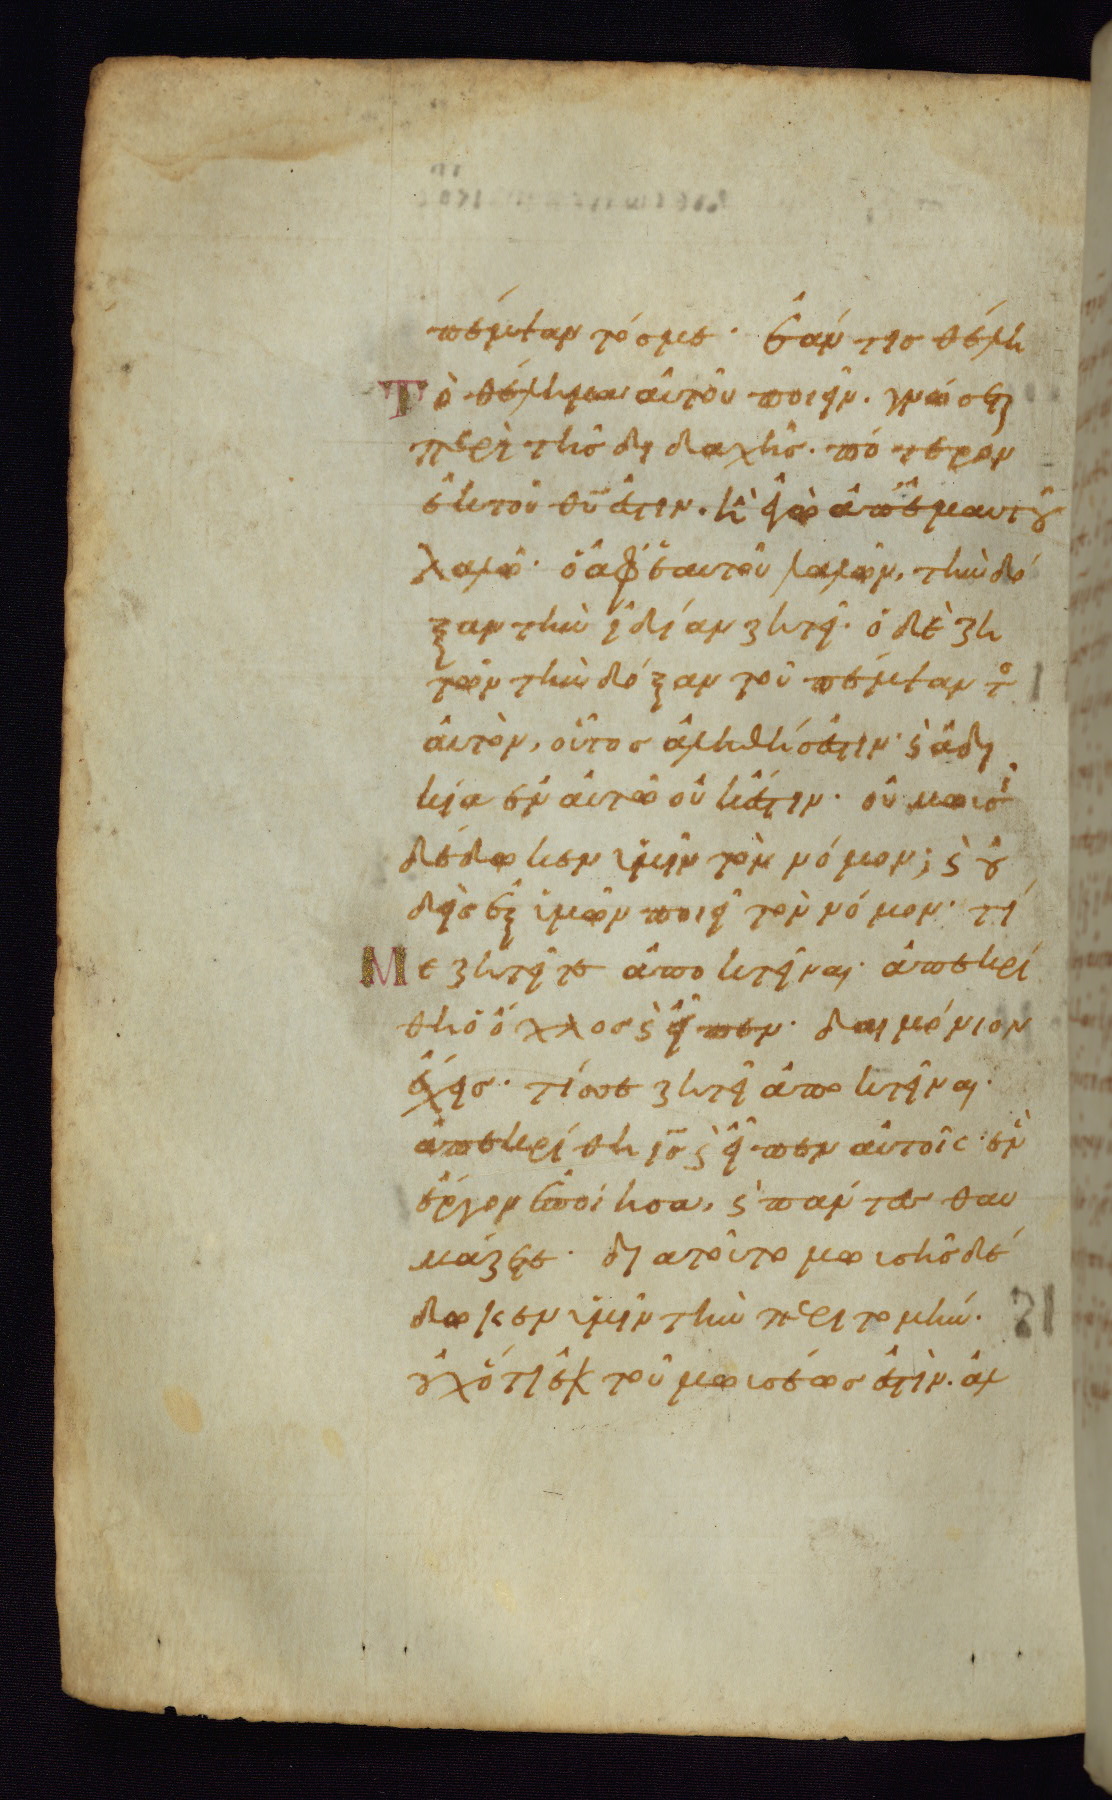 πέμψαντόσ με· ἐάν τισ θέλη
Τὸ θέλημα αὐτοῦ ποιεῖν· γνώσεται
περὶ τῆσ διδαχῆσ· πότερον
ἐκ τοῦ θῦ ἐστιν· ἢ ἐγὼ ἀπ' ἐμαυτοῦ
λαλῶ· ὁ ἀφ' ἑαυτοῦ λαλῶν, τὴν δό
ξαν τὴν ἰδίαν ζητεῖ· ὁ δὲ ζη
τῶν τὴν δόξαν τοῦ πέμψαντο
αὐτὸν, οὗτοσ ἀληθήσ ἐστιν· ϛ ἀδι
κία ἐν αὐτῶ οὐκ ἔστιν· οὐ μωισῆ
δέδωκεν ὑμῖν τὸν νόμον; ϛ οὐ
δεὶσ ἐξ ὑμῶν ποιεῖ τὸν νόμον· τί
Με ζητεῖτε ἀποκτεῖναι· ἀπεκρί
θη ὁ ὄχλοσ ϛ εἶπεν· δαιμόνιον
ἔχεισ· τίσ σε ζητεῖ ἀποκτεῖναι·
ἀπεκρίθη ισ ϛ εἶπεν αὐτοῖς· ἓν
ἔργον ἐποίησα, ϛ πάντεσ θαυ
μάζετε· διατοῦτο μωισῆσ δέ
δωκεν ὑμῖν τὴν περιτομήν·
οὐχ ὅτι ἐκ τοῦ μωισέωσ ἐστὶν· ἀλ